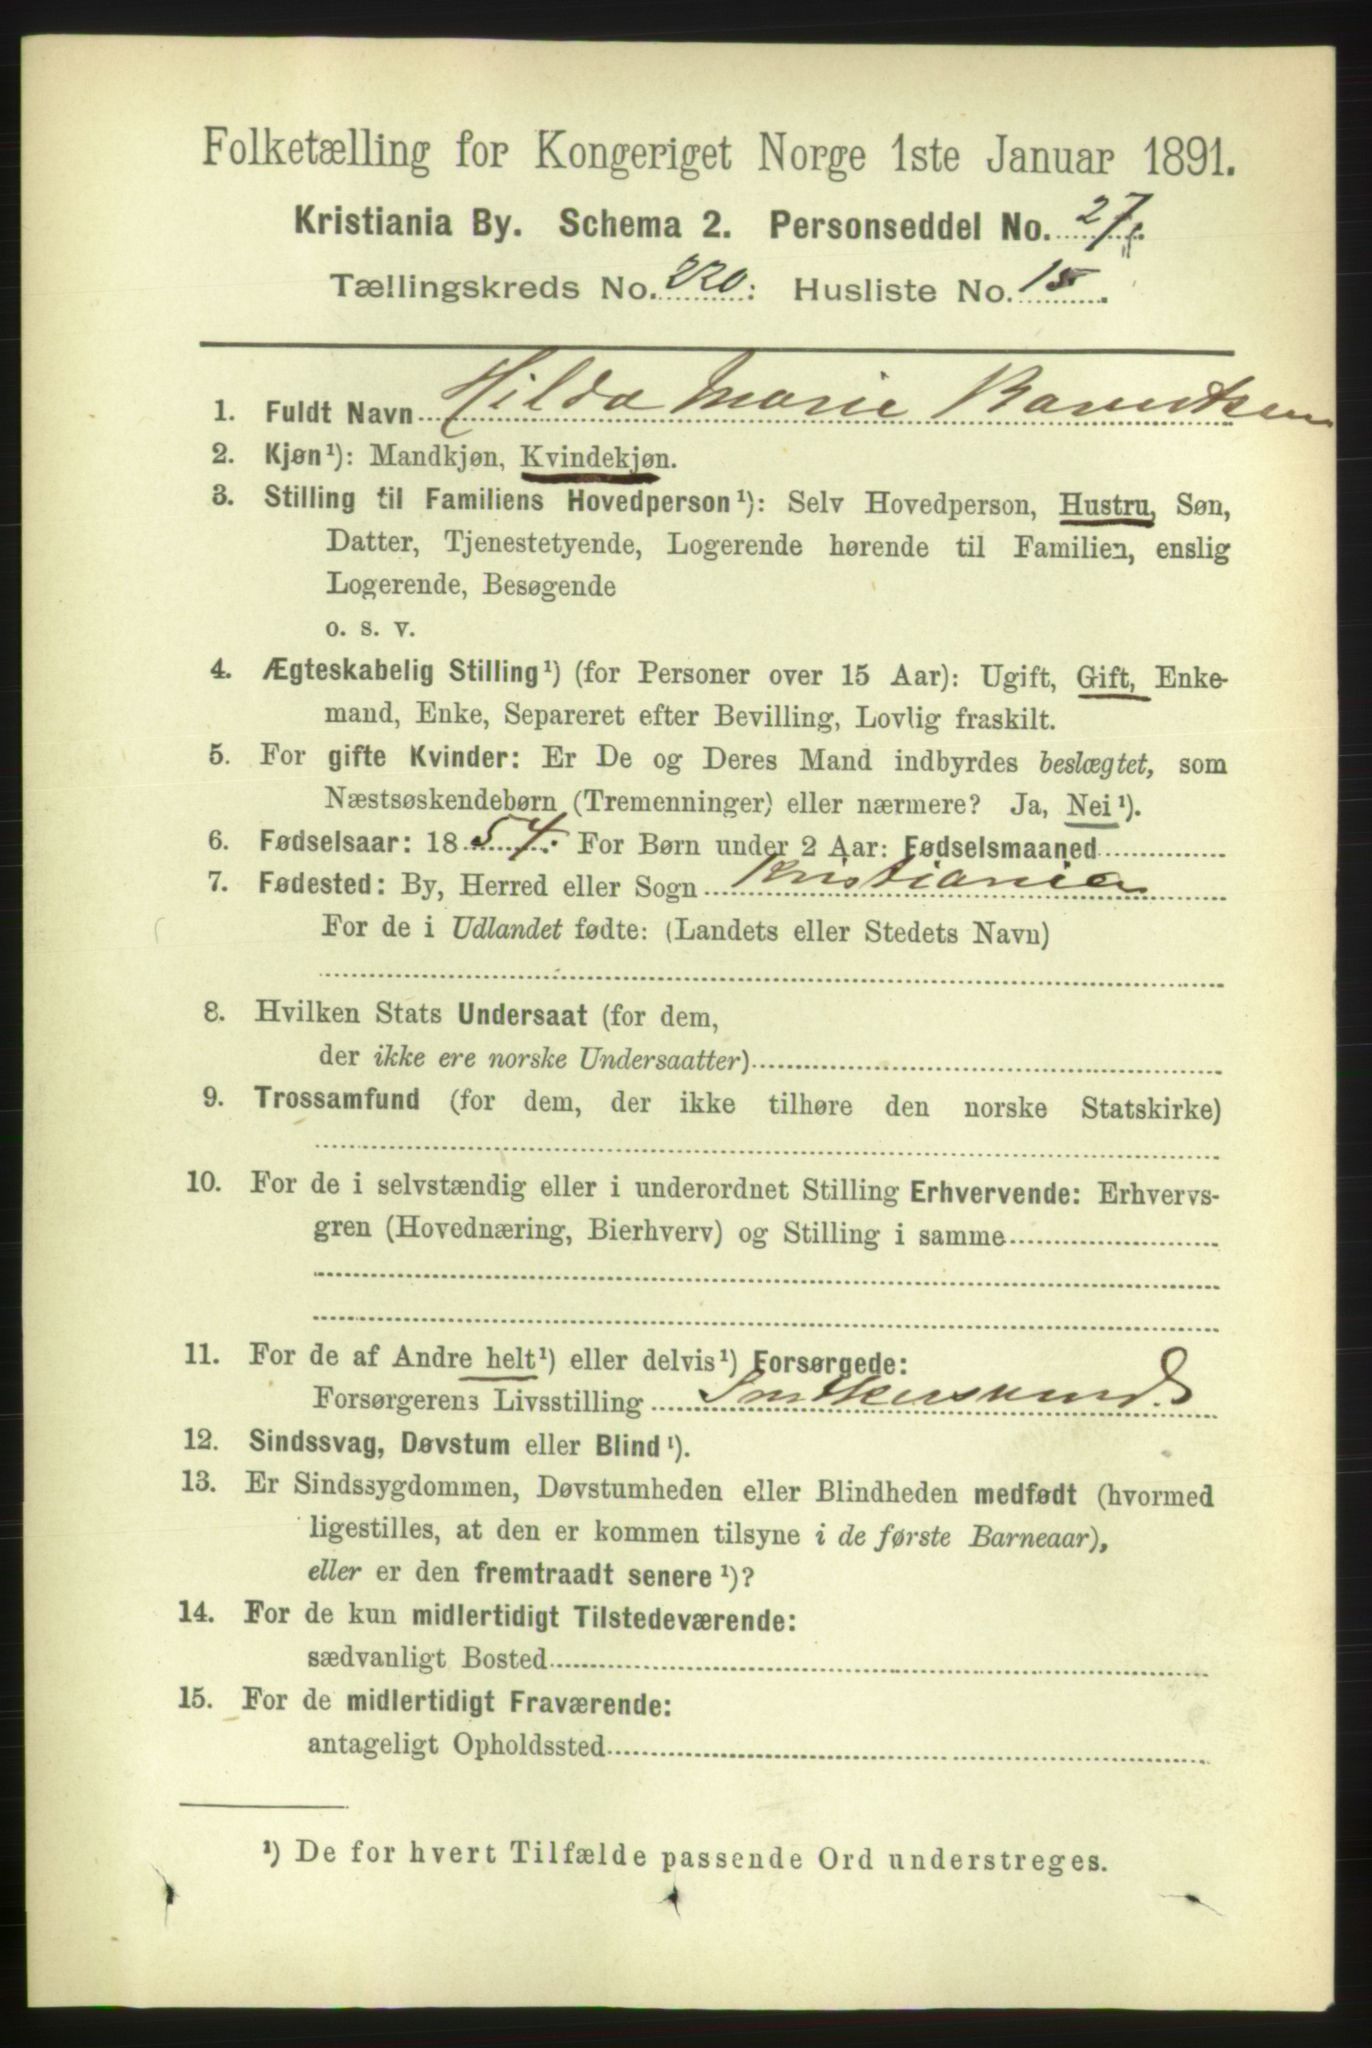 Folketælling for Kongeriget Norge 1ste Januar 1891.
Kristiania By. Schema 2. Personseddel No. 27.
Tællingskreds No. 220: Husliste No. 15.
1. Fuldt Navn Hilda Marie
2. Kjøn¹): Mandkjøn, Kvindekjøn.
3. Stilling til Familiens Hovedperson¹): Selv Hovedperson, Hustru, Søn,
Datter, Tjenestetyende, Logerende hørende til Familien, enslig
Logerende, Besøgende
o. s. v.
4. Ægteskabelig Stilling¹) (for Personer over 15 Aar): Ugift, Gift, Enke-
mand, Enke, Separeret efter Bevilling, Lovlig fraskilt.
5. For gifte Kvinder: Er De og Deres Mand indbyrdes beslægtet, som
Næstsøskendebørn (Tremenninger) eller nærmere? Ja, Nei¹).
6. Fødselsaar: 1854. For Børn under 2 Aar: Fødselsmaaned
7. Fødested: By, Herred eller Sogn Kristiania
For de i Udlandet fødte: (Landets eller Stedets Navn)
8. Hvilken Stats Undersaat (for dem,
der ikke ere norske Undersaatter)
9. Trossamfund (for dem, der ikke tilhøre den norske Statskirke)
10. For de i selvstændig eller i underordnet Stilling Erhvervende: Erhvervs-
gren (Hovednæring, Bierhverv) og Stilling i samme
11. For de af Andre helt¹) eller delvis¹) Forsørgede:
Forsørgerens Livsstilling
12. Sindssvag, Døvstum eller Blind¹).
13. Er Sindssygdommen, Døvstumheden eller Blindheden medfødt (hvormed
ligestilles, at den er kommen tilsyne i de første Barneaar),
eller er den fremtraadt senere¹)?
14. For de kun midlertidigt Tilstedeværende:
sædvanligt Bosted
15. For de midlertidigt Fraværende:
antageligt Opholdssted
¹) De for hvert Tilfælde passende Ord understreges.